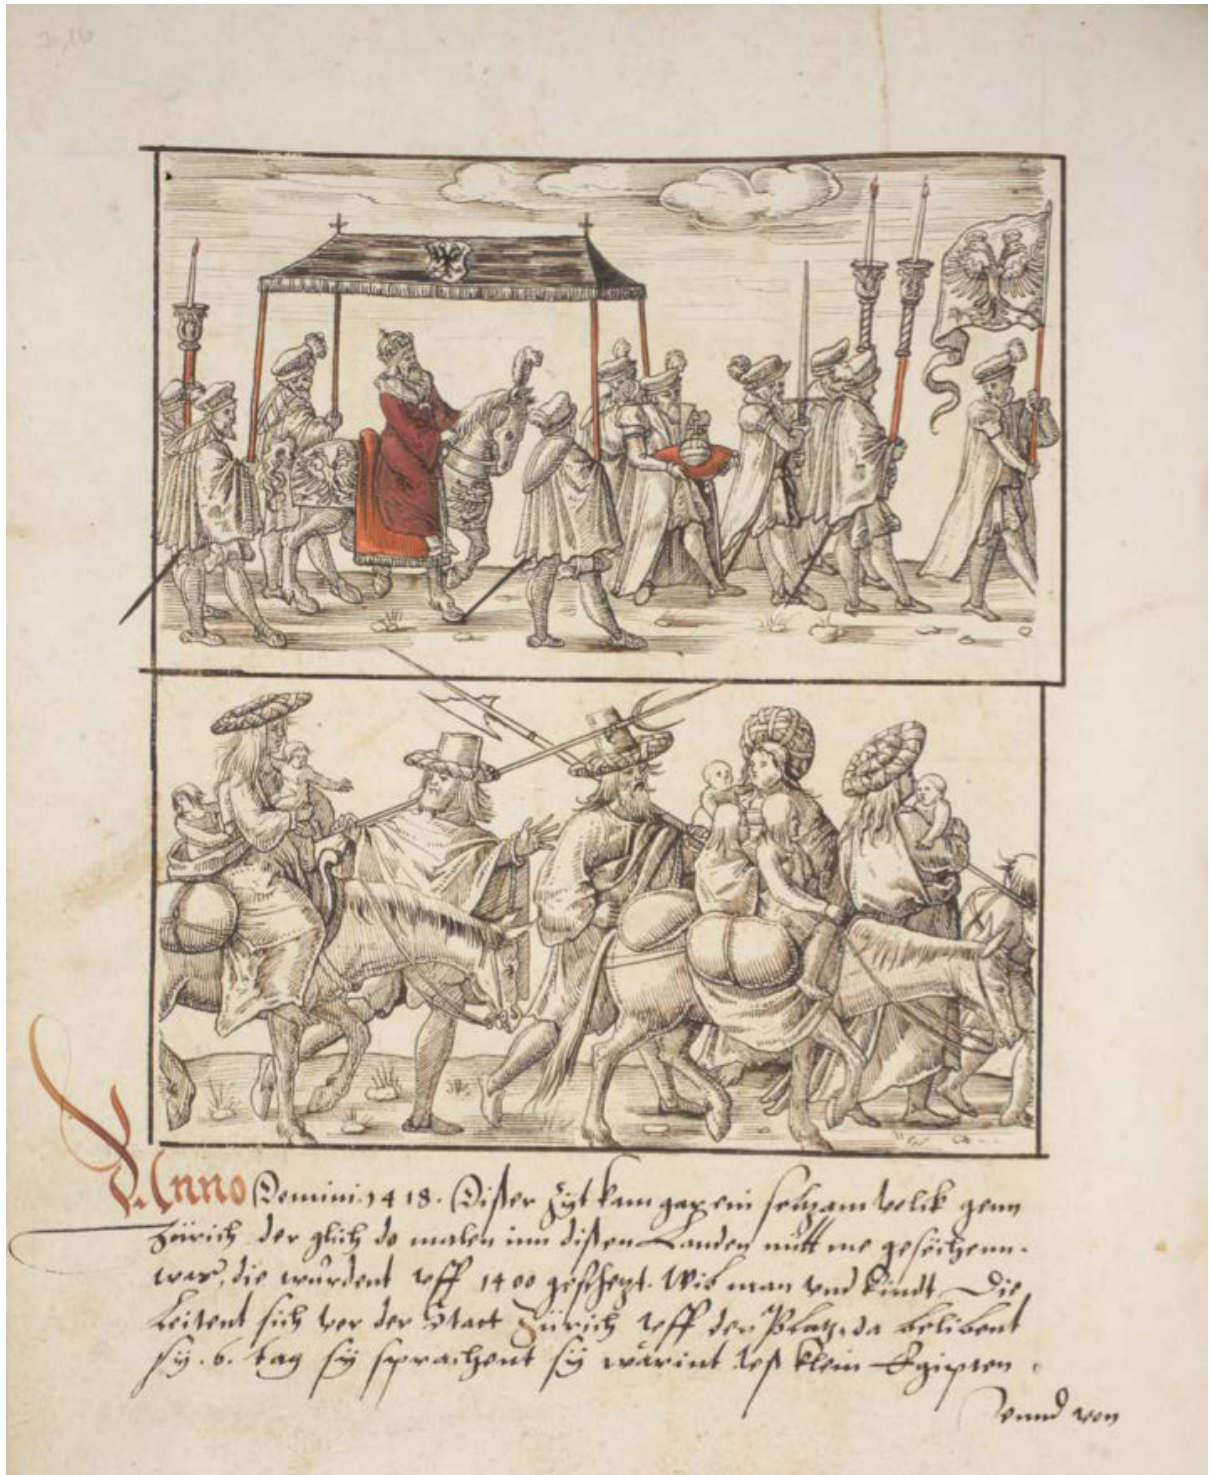 Anno Domini .1418. Disser Zyt kam gar ein seltzam volck genn
Zürich der glich do malen inn dissen Landen nütt me gesëchenn.
war, die wurdent vff 1400 geschetzt. Wib man vnd kindt Die
leitent sich vor der Statt Zürich vff den Platz, da belibent
sÿ .6. tag sÿ sprachent sÿ wärint vss klein Egipten
vnnd von